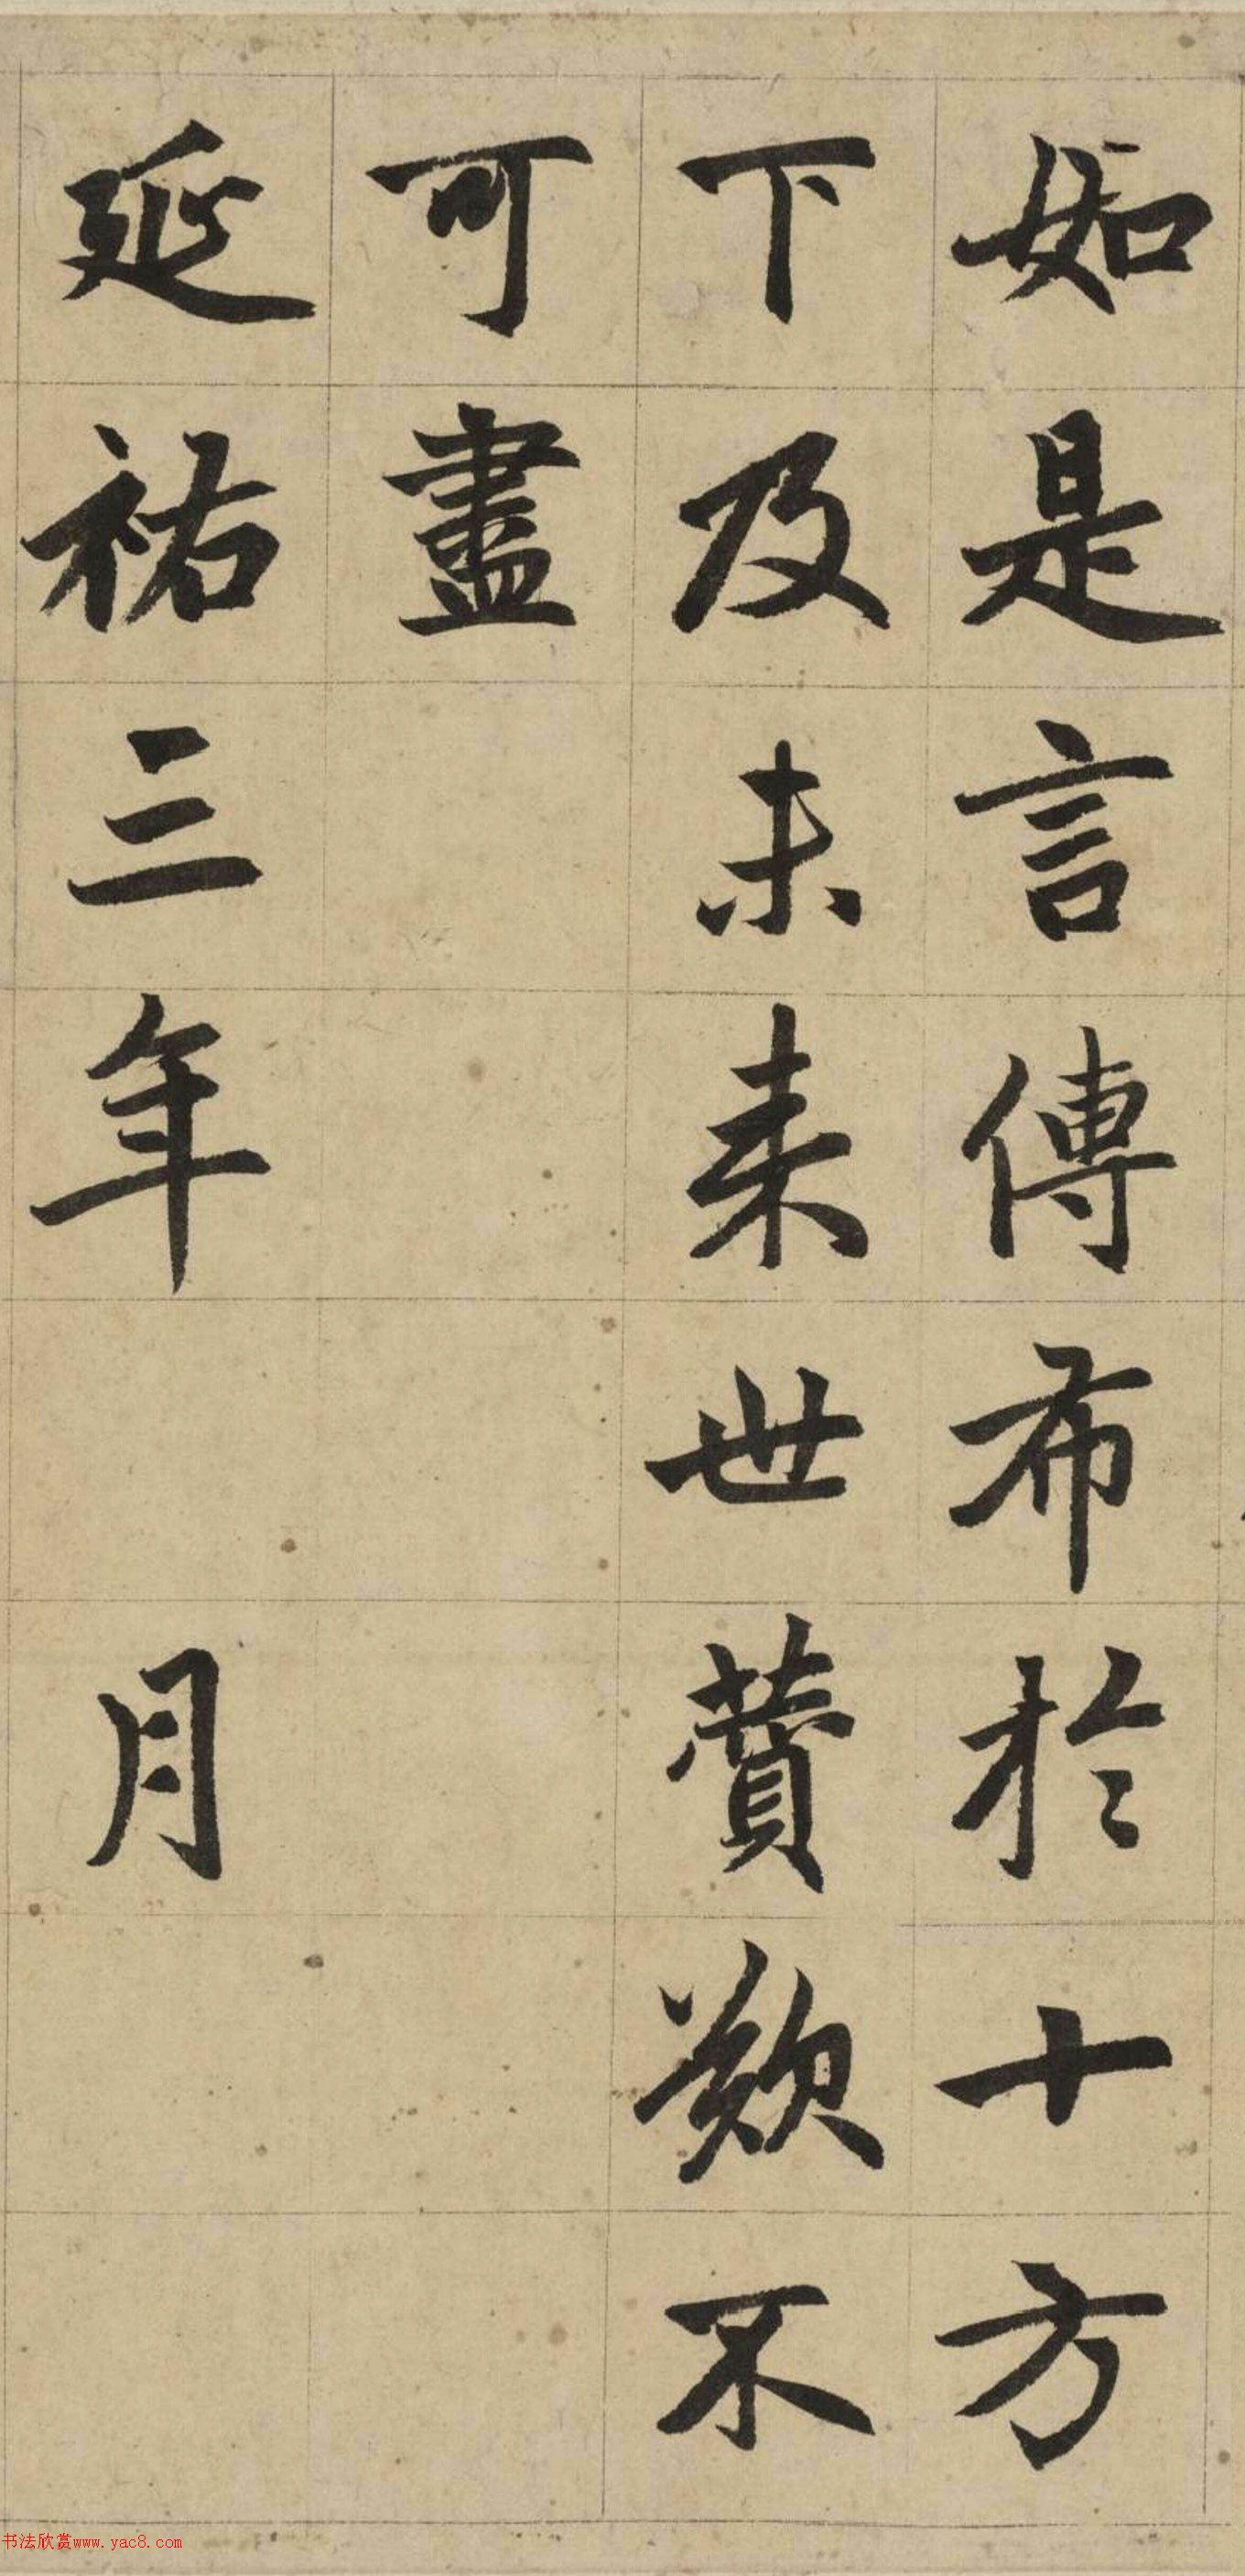 如是言傳布於十方
下及未来世讚歎不
可盡
延祐三年 月
书法欣赏www.yac8.com